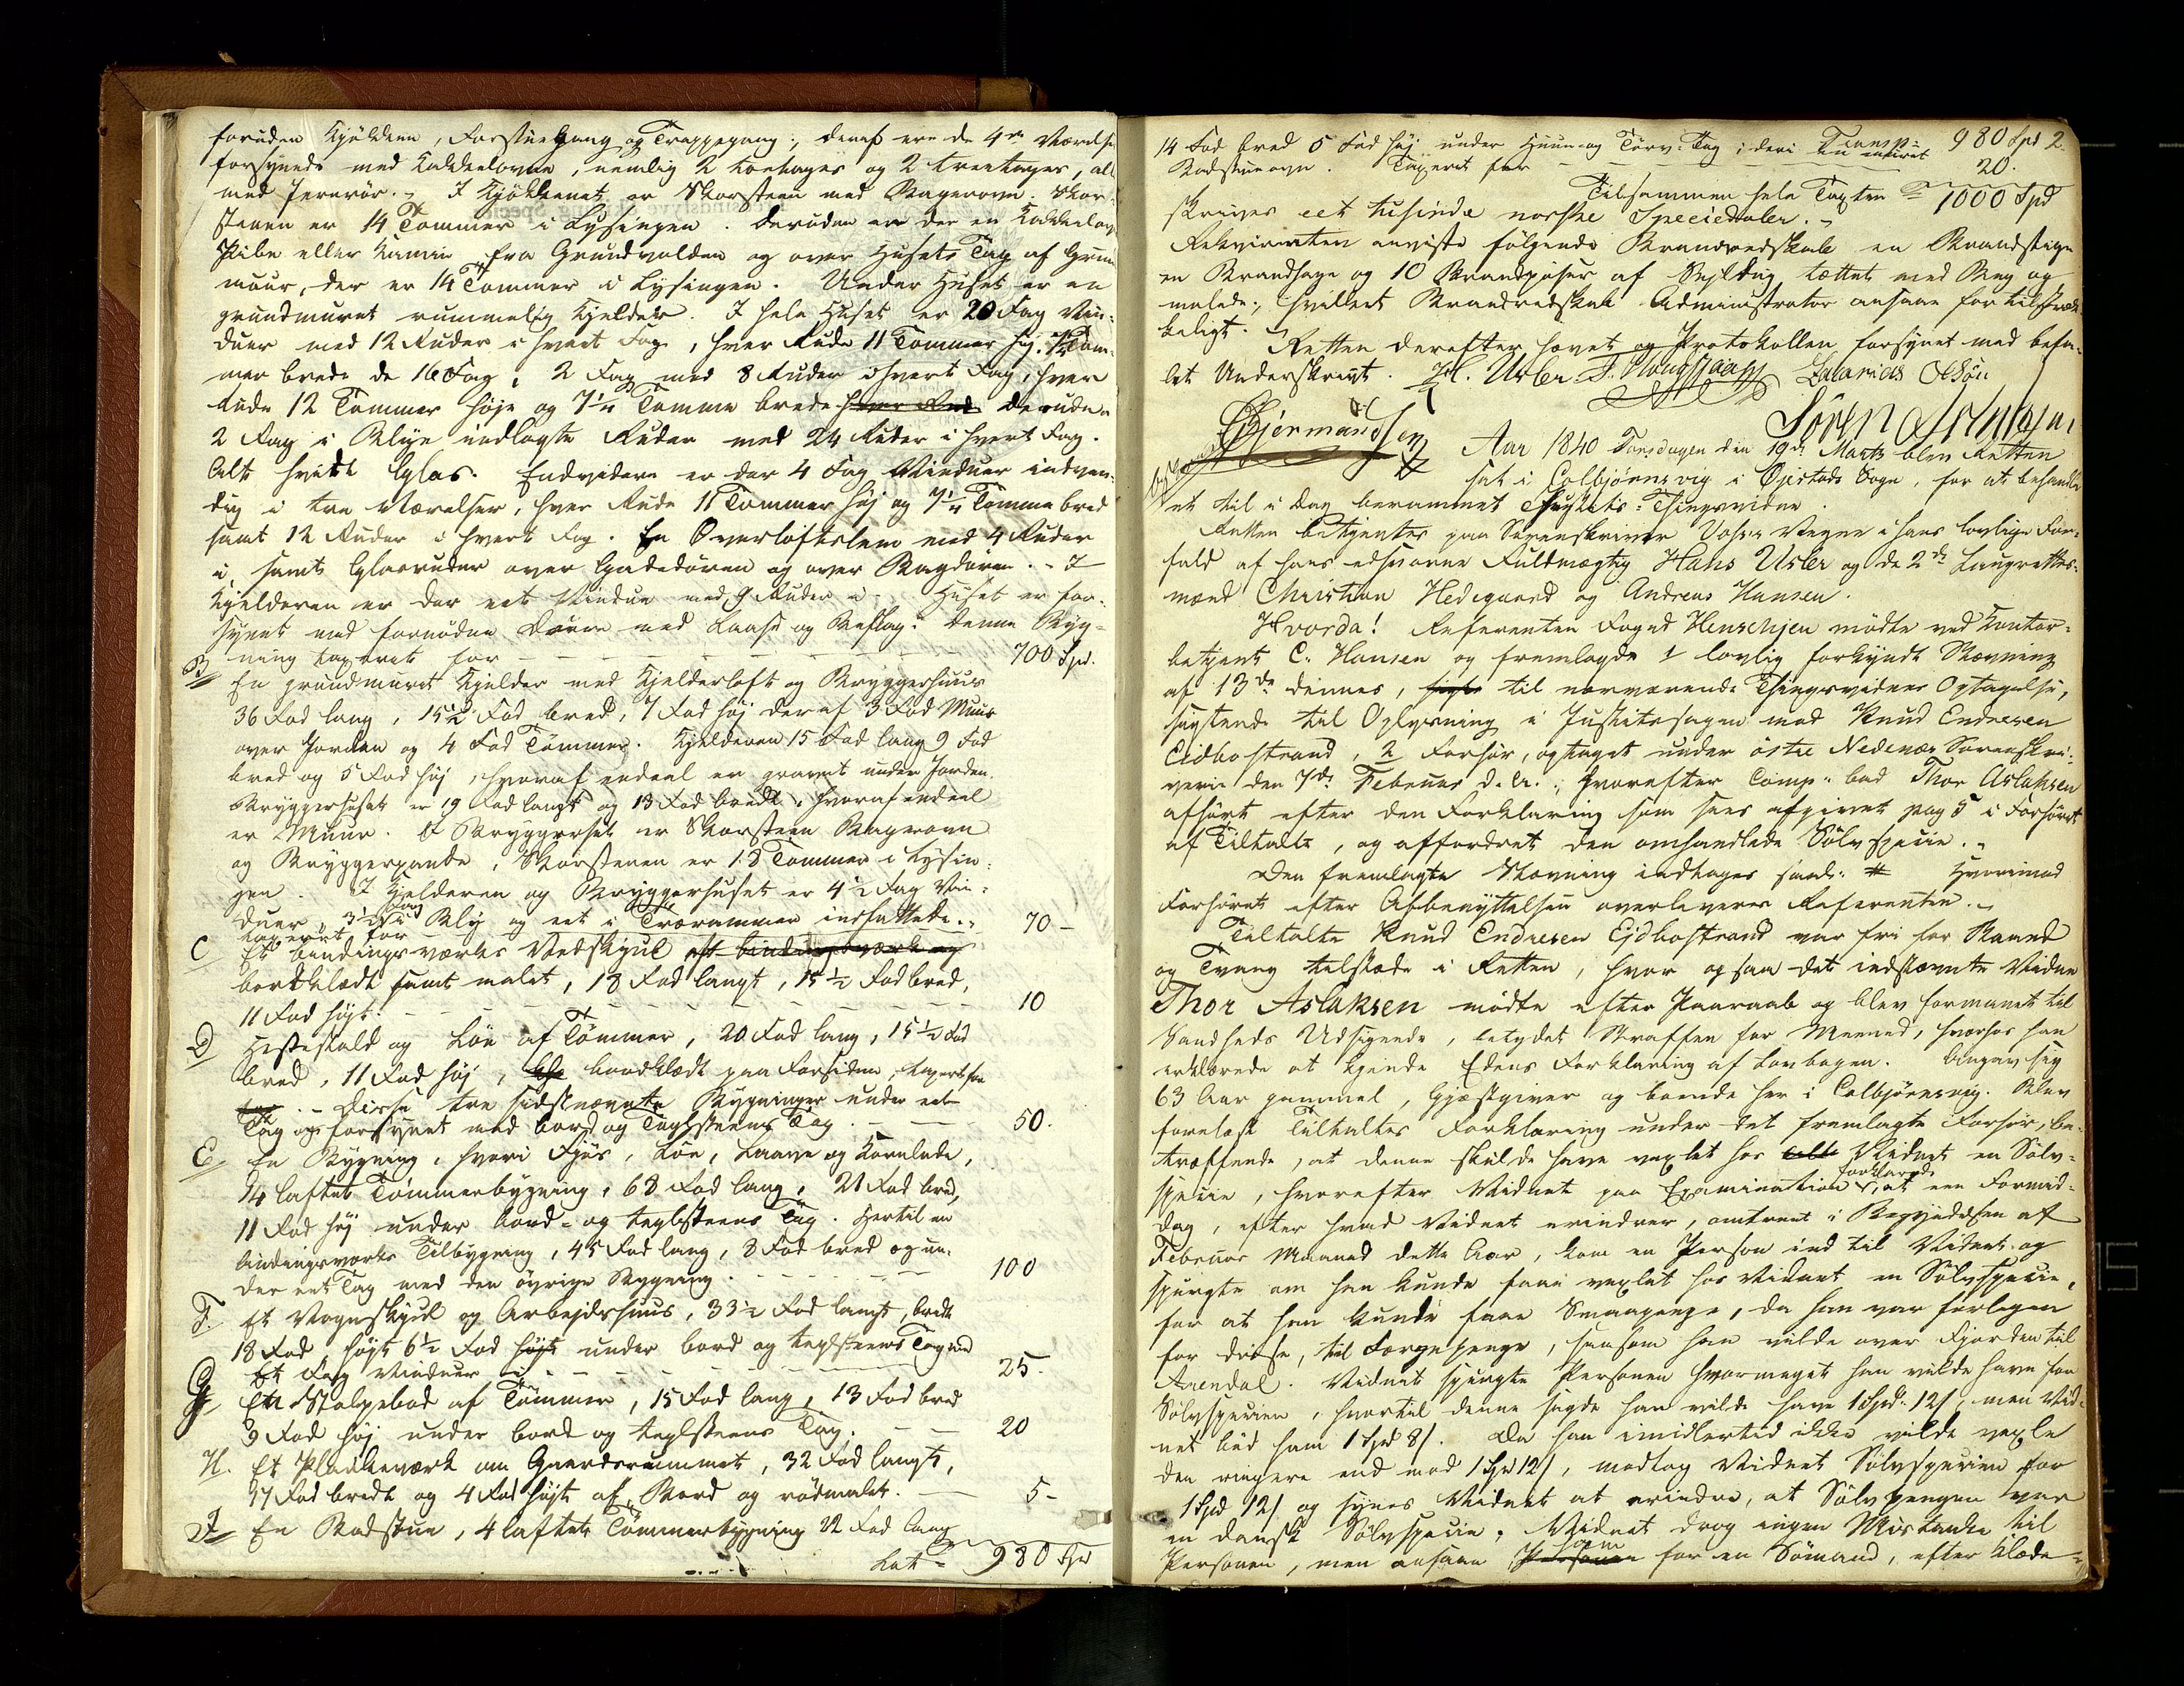 foruden Kjökken, Forstuegang og Trappegang; deraf ere de 4re Værelser
forsynede med Kakkelovne, nemlig 2 toetages og 2 treetages, alle
med Jernrör. I Kjökkenet er Skorsteen med Bagerovn. Skor-
stenen er 14 Tommer i Lysingen. Desuden er der en Kakkelovns
Pibe eller Kamin fra Grundvolden og over Husets Tag af Grund-
muur, der er 14 Tommer i Lysingen. Under Huset er en
grundmuret rummelig Kjelder. I hele Huset er 20 Fag Vin-
duer med 12 Ruder i hvert Fag, hver Rude 11 Tommer høj, 7½ Tom-
mer brede de 16 Fag, 2 Fag med 8 Ruder i hvert Fag, hver
Rude 12 Tommer høje og 7½ Tomme brede hver Rude desuden
2 Fag i Blye indlagte Ruder med 24 Ruder i hvert Fag.
Alt hvidt Glas. Endvidere er der 4 Fag Vinduer indven-
dig i tre Værelser, hver Rude 11 Tommer høj og 7½ Tomme bred
samt 12 Ruder i hvert Fag. En Overloftslem med 4 Ruder
i, samt Glasruder over Gadedören og over Bagdören. - I
Kjelderen er der eet Vindue med 9 Ruder i. Huset er for-
synet med fornødne Dörre med Laase og Beslag. Denne Byg-
ning taxeret for - - - 700 Spd.
B En grundmuret Kjelder med Kjelderloft og Bryggerhuus
36 Fod lang, 15½ Fod bred, 7 Fod høj deraf 3 Fod Muur
over Jorden og 4 Fod Tömmer. Kjelderen 15 Fod lang 9 Fod
bred og 5 Fod høj, hvoraf endeel er gravet under Jorden.
Bryggerhuset er 19 Fod langt og 13 Fod bredt, hvoraf endeel
er Muur. I Bryggerhuset er Skorsteen Bagerovn
og Bryggerpande, Skorstenen er 18 Tommer i Lysin-
gen. I Kjelderen og Bryggerhuset er 4½ Fag Vin-
duer, 3½ Fag i Bly og eet i Trærammer indfattede.
taxeret for 70 -
C Et bindingsværks Vedskjul af bindingsværk og
bordklædt samt malet, 18 Fod langt, 15½ Fod bred,
11 Fod høit. - - - 10
D Hestestald og Löe af Tömmer, 20 Fod lang, 15½ Fod
bred, 11 Fod høj, bordklædt paa Forsiden, taxeret for
- Disse tre sidstnævnte Bygninger under eet
Tag og forsynet med bord og Taglsteens Tag. - 50.
E En Bygning, hvori Fjös, Löe, Laave og Kornlade,
14 laftet Tömmerbygning, 68 Fod lang, 21 Fod bred,
11 Fod høj under bord- og teglsteens Tag. Hertil en
bindingsværks Tilbygning, 45 Fod lang, 8 Fod bred og un-
der eet Tag med den øvrige Bygning. - - - 100
F. Et Vognskjul og Arbejdshuus, 33½ Fod langt, bredt
18 Fod, høit 6½ Fod høit under bord og teglsteens Tag med
Et Fag Vinduer i. - - - 25.
G En Stolpebod af Tömmer, 15 Fod lang, 13 Fod bred
9 Fod høj under bord og teglsteens Tag. - 20
H. Et Plankeværk om Gaardsrummet, 32 Fod langt,
17 Fod bredt og 4 Fod høit af Bord og rödmalet. - 5 -
I En Badstue, 4 laftets Tömmerbygning 22 Fod lang
Lat = 980 Spd
14 Fod bred 5 Fod høj under Huun og Törv-Tag; deri en muret Transp: 980 Spd 2.
Badstueovn. Taxeret for - - - 20.
Tilsammen hele Taxten = 1000 Spd
skriver eet tusinde norske Speciedaler. -
Rekvirenten anviste følgende Brandredskab en Brandstige
en Brandhage og 10 Brandpöser af Seildug tættet med Beg og
malede; hvilket Brandredskab Administrator ansaae for tilstræk-
keligt.
Retten derefter hævet og Protokollen forsynet med befa-
let Underskrivt. H. Usler. Zacarias Olsön
Bjermandsen Sören
Aar 1840 Torsdagen den 19de Marts blev Retten
sat i Colbjörnsvig i Öjestads Sogn, for at behandle
et til i Dag berammet Justits-Thingsvidne.
Retten betjentes paa Sorenskriver Vegne i hans lovlige For-
fald af hans edsvorne Fuldmægtig Hans Usler og de 2de Laugrettes-
mænd Christian Hedegaard og Andreas Hansen.
Hvorda! Referenten Foged Henschjen mödte ved Kontor-
betjent C. Hansen og fremlagde 1 lovlig forkyndt Stævning
af 13de dennes, til nærværende Thingsvidnes Optagelse,
sigtende til Oplysning i Justitssagen mod Knud Endresen
Eidbostrand, 2 Forhör, optaget under östre Nedenæs Sorenskri-
veri den 7de Februar d. A.; hvorefter Comp. bad Thor Aslaksen
afhört efter den Forklaring som sees afgivet pag 5 i Forhöret
af Tiltalte, og affordret den omhandlede Sölvspecie.
Den fremlagte Stævning indtages saal: # Hvorimod
Forhöret efter Afbenyttelsen overleveres Referenten. -
Tiltalte Knud Endresen Ejdbostrand var fri for Baand
og Tvang tilstæde i Retten, hvor ogsaa det indstævnte Vidne
Thor Aslaksen mödte efter Paaraab og blev formanet til
Sandheds Udsigende, betydet Straffen for Meened, hvorhos han
erklærede at kjende Edens Forklaring af Lovbogen. Angav sig
63 Aar gammel, Gjæstgiver og boende her i Colbjörnsvig. Blev
forelæst Tiltaltes Forklaring under det fremlagte Forhör, be-
træffende, at denne skulde have vexlet hos Vidnet en Sölv-
specie, hvorefter Vidnet paa Examination forklarede, at een Formid-
dag, efter hvad Vidnet erindrer, omtrent i Begyndelsen af
Februar Maaned dette Aar, kom en Person ind til Vidnet og
spurgte om han kunde faae vexlet hos Vidnet en Sölvspecie,
for at han kunde faae Smaapenge, da han var forlegen
for disse, til Færgepenge, saasom han vilde over Fjorden til
Arendal. Vidnet spurgte Personen hvormeget han vilde have for
Sölvspecien, hvortil denne sagde han vilde have 1 Spd. 12 ß, men Vid-
net böd ham 1 Spd 8 ß. Da han imidlertid ikke vilde vexle
den ringere end mod 1 Spd 12 ß, modtog Vidnet Sölvspecien for
1 Spd 12 ß og synes Vidnet at erindre, at Sölvpengen var
en dansk Sölvspecie. Vidnet drog ingen Mistanke til
Personen, men ansaae Personen ham for en Sömand, efter Klæde-